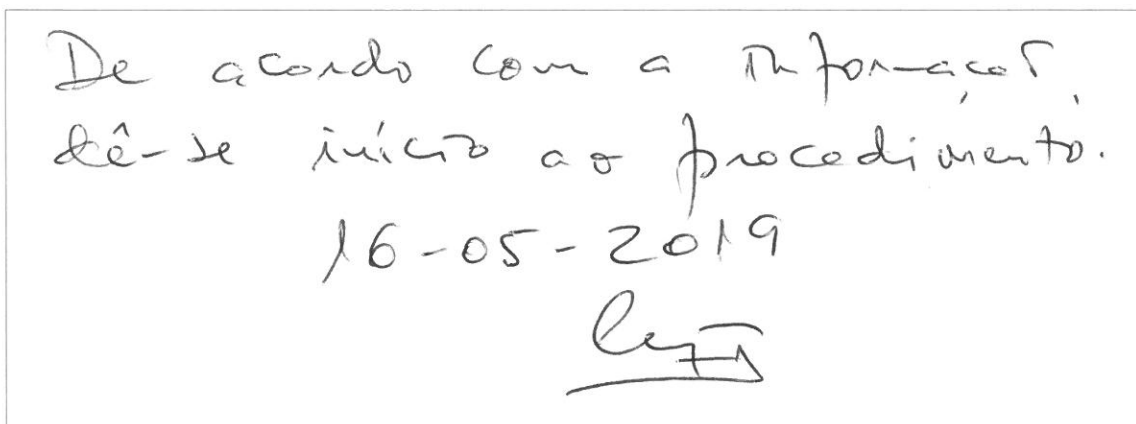 De acordo com a informação,
dê-se início ao procedimento.
16-05-2019